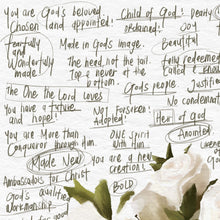 You are God's beloved. Child of God: Dearly
Chosen and appointed: ordained: God
Fearfully Made in God's image. Beautiful
and
Wonderfully The head, not the tail. Fully redeemed
made! Top & never Called & known
bottom. God's people. Justified
The One the Lord loves
You have a future Not Forsaken No condemn
and hope! adopted! Heir of God
You are more than ONE Spirit Anointed
Conqueror through Him. with Him
Made New! You are a new
Ambassadors for Christ creation!
God's BOLD
Workmanship